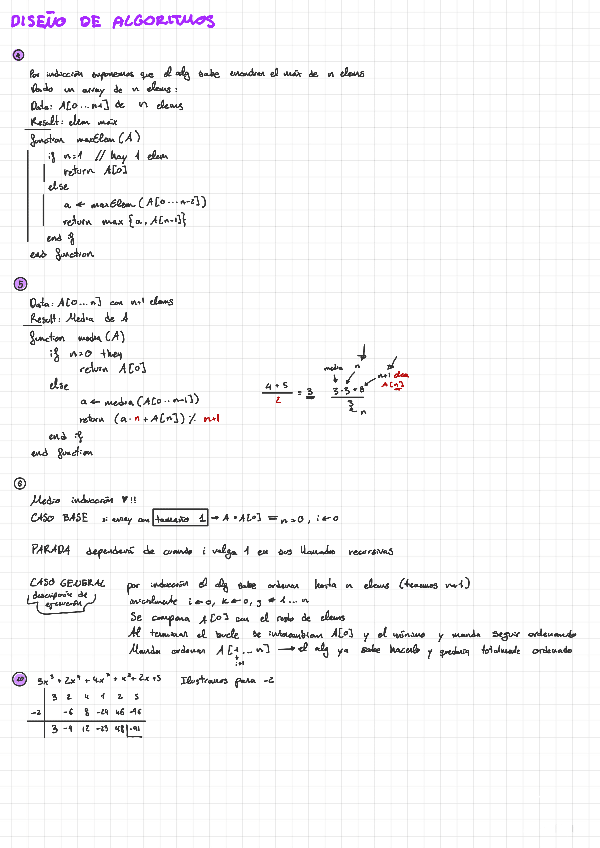 DISEÑO DE ALGORITMOS
4
Por inducción suponemos que el alg sabe encontrar el máx de n elems
Dado un array de n elems:
Data: A[0...n-1] de n elems
Result: elem máx
function maxElem(A)
if n=1 // hay 1 elem
return A[0]
else
a ← maxElem(A[0...n-2])
return max {a, A[n-1]}
end if
end function
5
Data: A[0...n] con n+1 elems
Result: Media de A
function media(A)
if n=0 then
return A[0]
else
a ← media(A[0...n-1])
return (a·n + A[n]) / n+1
end if
end function
4+5
2
= 3
media n n+1 elem
A[n]
3·3+8
3
n
6
Medio inducción ♥!!
CASO BASE si array con tamaño 1 → A = A[0] = n=0, i←0
PARADA dependerá de cuando i valga 1 en sus llamadas recursivas
CASO GENERAL por inducción el alg sabe ordenar hasta n elems (tenemos n+1)
descripción de ejecución
inicialmente i←0, k←0, j←1...n
Se compara A[0] con el resto de elems
Al terminar el bucle se intercambian A[0] y el mínimo y manda seguir ordenando
Manda ordenar A[1...n] → el alg ya sabe hacerlo y quedaría totalmente ordenado
i+1
10 3x⁵+2x⁴+4x³+x²+2x+5 Ilustramos para -2
3 2 4 1 2 5
-2 -6 8 -24 46 -96
3 -4 12 -23 48 -91